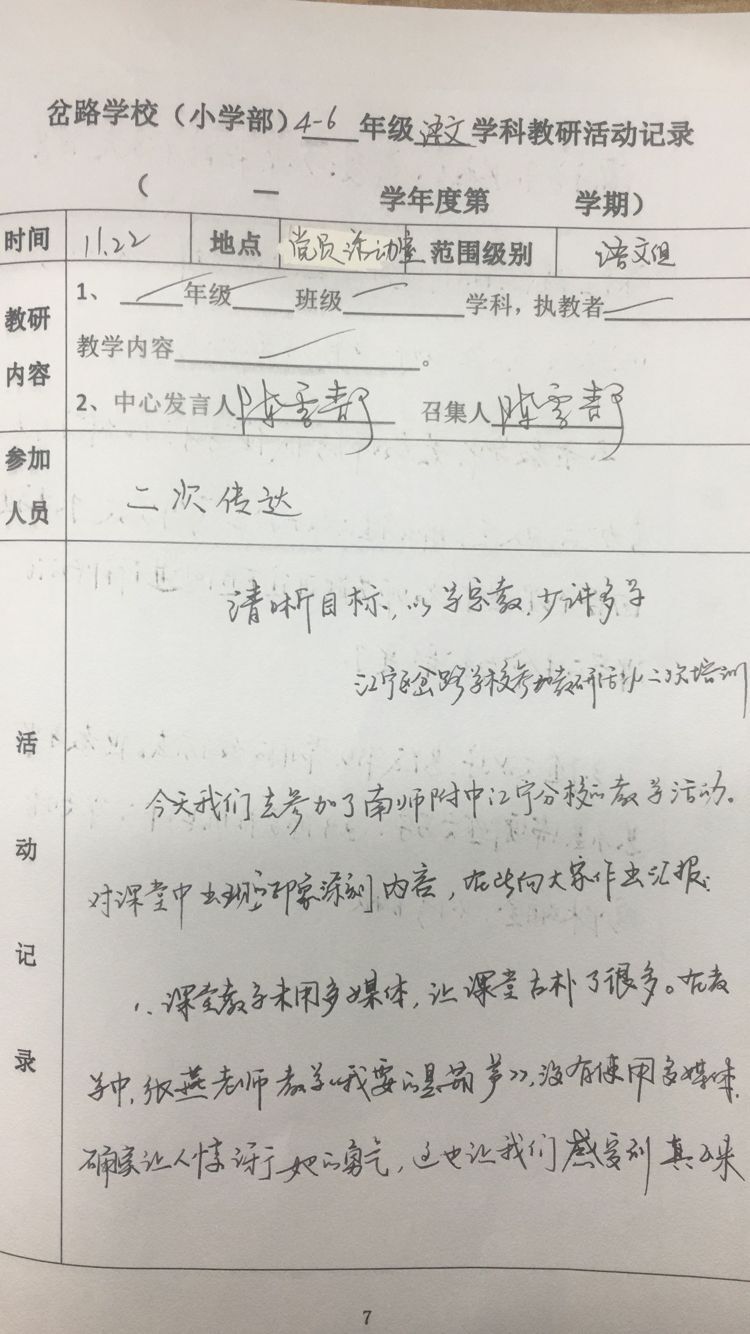 岔路学校（小学部）4-6年级语文学科教研活动记录
（ 一 学年度第 学期）
时间 11.22 地点 党员活动室 范围级别 语文组
教研内容
1、 年级 班级 学科，执教者
教学内容 。
2、中心发言人 陈雪 召集人 陈雪
参加人员 二次传达
活动记录
清晰目标，以学宗教，少讲多学
江宁区岔路学校参加教研活动二次培训
今天我们去参加了南师附中江宁分校的教学活动。
对课堂中 印象深刻内容，在此向大家作出汇报：
1、课堂教学未用多媒体，让课堂古朴了很多。在教
学中，张燕老师教学《我要的是葫芦》，没有使用多媒体，
确实让人惊讶于她的勇气，这也让我们感受到真正来
7